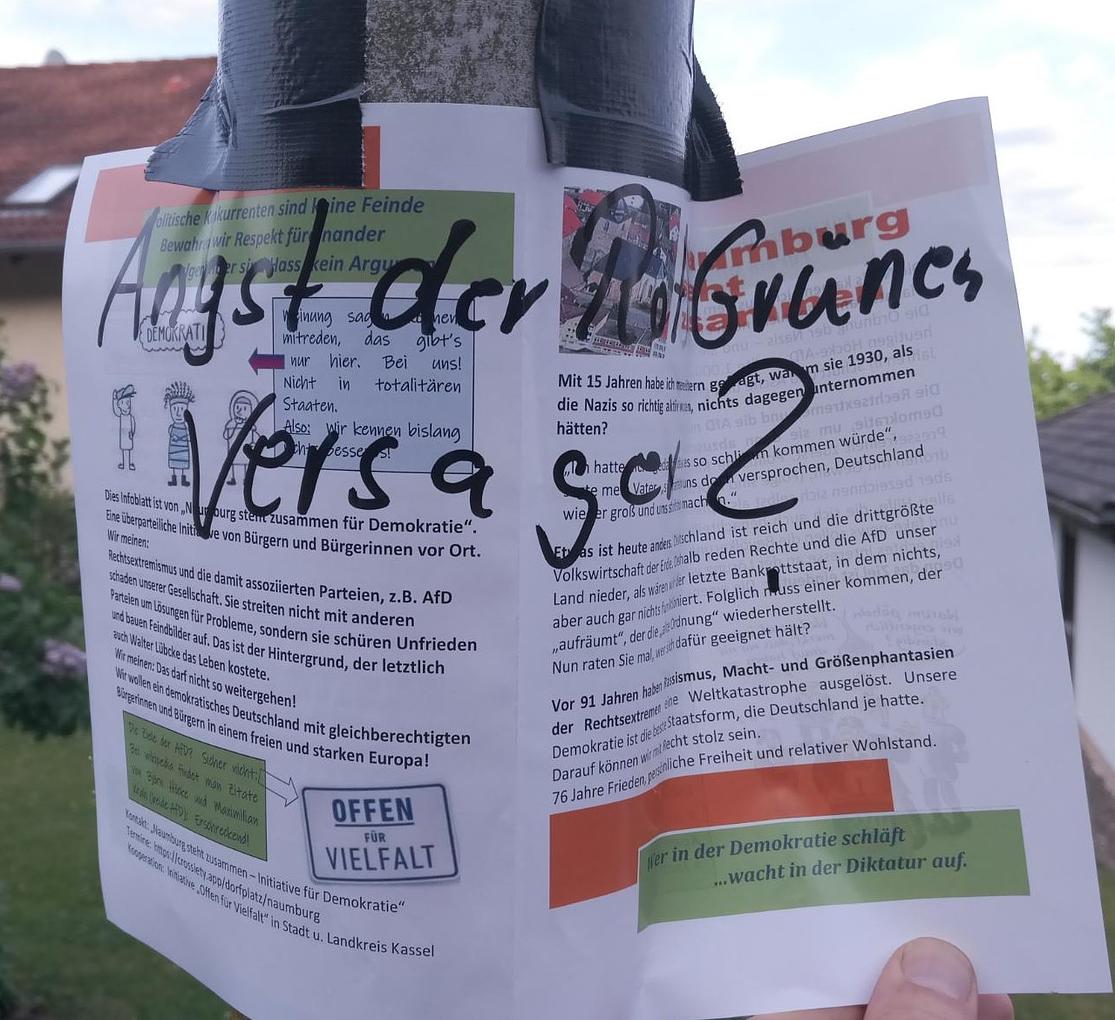 Angst der Rot Grünen
Versager ?
olitische K kurrenten sind keine Feinde
Bewahren wir Respekt für nander
sind Hass kein Argu
DEMOKRATI
einung sag nen
mitreden, das gibt's
nur hier. Bei uns!
Nicht in totalitären
Staaten.
Also: Wir kennen bislang
nichts besseres!
Dies Infoblatt ist von „Naumburg steht zusammen für Demokratie“.
Eine überparteiliche Initiative von Bürgern und Bürgerinnen vor Ort.
Wir meinen:
Rechtsextremismus und die damit assoziierten Parteien, z.B. AfD
schaden unserer Gesellschaft. Sie streiten nicht mit anderen
Parteien um Lösungen für Probleme, sondern sie schüren Unfrieden
und bauen Feindbilder auf. Das ist der Hintergrund, der letztlich
auch Walter Lübcke das Leben kostete.
Wir meinen: Das darf nicht so weitergehen!
Wir wollen ein demokratisches Deutschland mit gleichberechtigten
Bürgerinnen und Bürgern in einem freien und starken Europa!
Die Ziele der AfD? Sicher nicht:(
Bei wikipedia findet man Zitate
von Björn Höcke und Maximilian
Krah (beide AfD): Erschreckend!
OFFEN
FÜR
VIELFALT
Kontakt: „Naumburg steht zusammen – Initiative für Demokratie“
Termine: https://crossiety.app/dorfplatz/naumburg
Kooperation: Initiative „Offen für Vielfalt“ in Stadt u. Landkreis Kassel
aumburg
ht
sammen
Mit 15 Jahren habe ich meinen Eltern gefragt, warum sie 1930, als
die Nazis so richtig aktiv wurden, nichts dagegen unternommen
hätten?
„Ich hatte nie gedacht, dass es so schlimm kommen würde“,
sagte mein Vater, „sie haben uns doch versprochen, Deutschland
wieder groß und uns stolz zu machen.“
Etwas ist heute anders. Deutschland ist reich und die drittgrößte
Volkswirtschaft der Erde. Deshalb reden Rechte und die AfD unser
Land nieder, als wären wir der letzte Bankrottstaat, in dem nichts,
aber auch gar nichts funktioniert. Folglich muss einer kommen, der
„aufräumt“, der die „alte Ordnung“ wiederherstellt.
Nun raten Sie mal, wer sich dafür geeignet hält?
Vor 91 Jahren haben Rassismus, Macht- und Größenphantasien
der Rechtsextremen eine Weltkatastrophe ausgelöst. Unsere
Demokratie ist die beste Staatsform, die Deutschland je hatte.
Darauf können wir mit Recht stolz sein.
76 Jahre Frieden, persönliche Freiheit und relativer Wohlstand.
Wer in der Demokratie schläft
...wacht in der Diktatur auf.